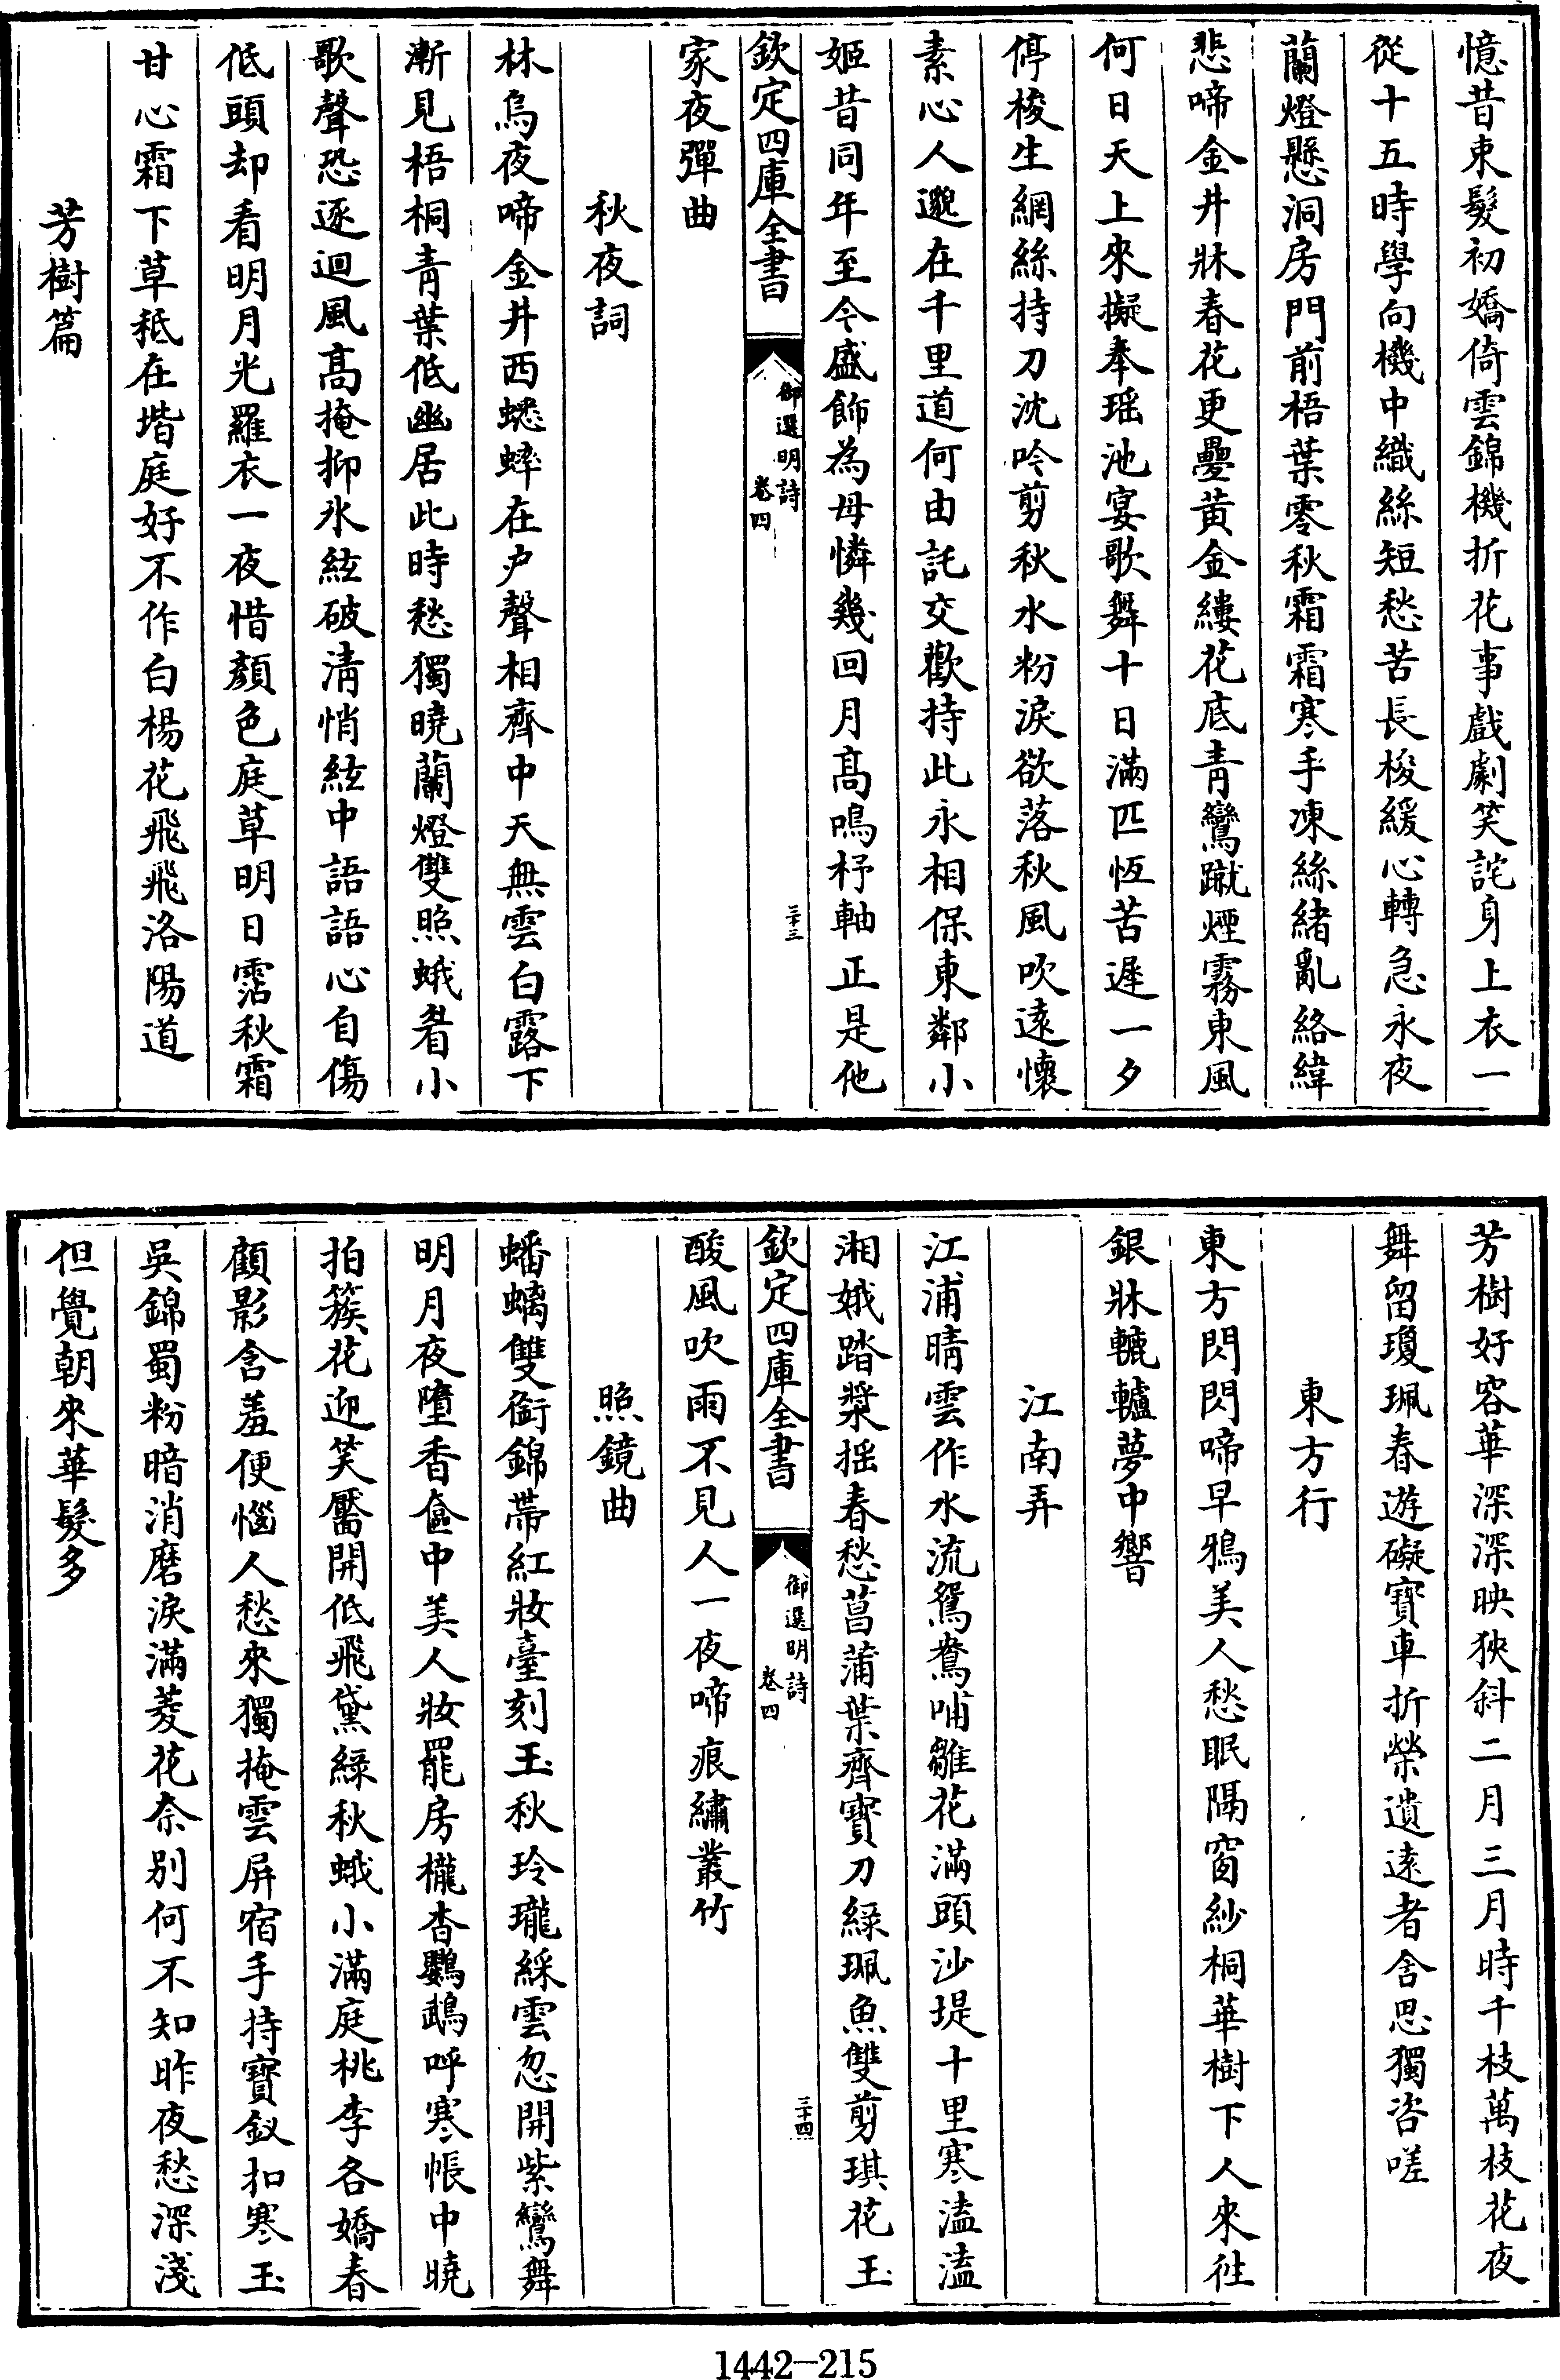 憶昔束髮初嬌倚雲錦機折花事戲劇笑詫身上衣一
從十五時學向機中織絲短愁苦長梭緩心轉急永夜
蘭燈懸洞房門前梧葉零秋霜霜寒手凍絲緒亂絡緯
悲啼金井牀春花更疊黃金縷花底青鸞蹴煙霧東風
何日天上來擬奉瑶池宴歌舞十日滿匹恆苦遲一夕
停梭生網絲持刀沈吟剪秋水粉淚欲落秋風吹遠懷
素心人邈在千里道何由託交歡持此永相保東鄰小
姬昔同年至今盛飾為母憐幾回月高鳴杼軸正是他
欽定四庫全書
御選明詩
卷四
三十三
家夜彈曲
秋夜詞
林烏夜啼金井西蟋蟀在户聲相齊中天無雲白露下
漸見梧桐青葉低幽居此時愁獨曉蘭燈雙照蛾眉小
歌聲恐逐迴風高掩抑氷絃破清悄絃中語語心自傷
低頭却看明月光羅衣一夜惜顏色庭草明日霑秋霜
甘心霜下草秪在堦庭好不作白楊花飛飛洛陽道
芳樹篇
芳樹好容華深深映狹斜二月三月時千枝萬枝花夜
舞留瓊珮春遊礙寶車折榮遺遠者含思獨咨嗟
東方行
東方閃閃啼早鴉美人愁眠隔窗紗桐華樹下人來徃
銀牀轆轤夢中響
江南弄
江浦晴雲作水流鴛鴦哺雛花滿頭沙堤十里寒溘溘
湘娥踏槳摇春愁菖蒲葉齊寶刀綠珮魚雙剪琪花玉
欽定四庫全書
御選明詩
卷四
三十四
酸風吹雨不見人一夜啼痕繡叢竹
照鏡曲
蟠螭雙銜錦帶紅妝臺刻玉秋玲瓏綵雲忽開紫鸞舞
明月夜墮香奩中美人妝罷房櫳杳鸚鵡呼寒帳中曉
拍簇花迎笑靨開低飛黛綠秋蛾小滿庭桃李各嬌春
顧影含羞便惱人愁來獨掩雲屏宿手持寶釵扣寒玉
吳錦蜀粉暗消磨淚滿菱花奈別何不知昨夜愁深淺
但覺朝來華髮多
1442—215